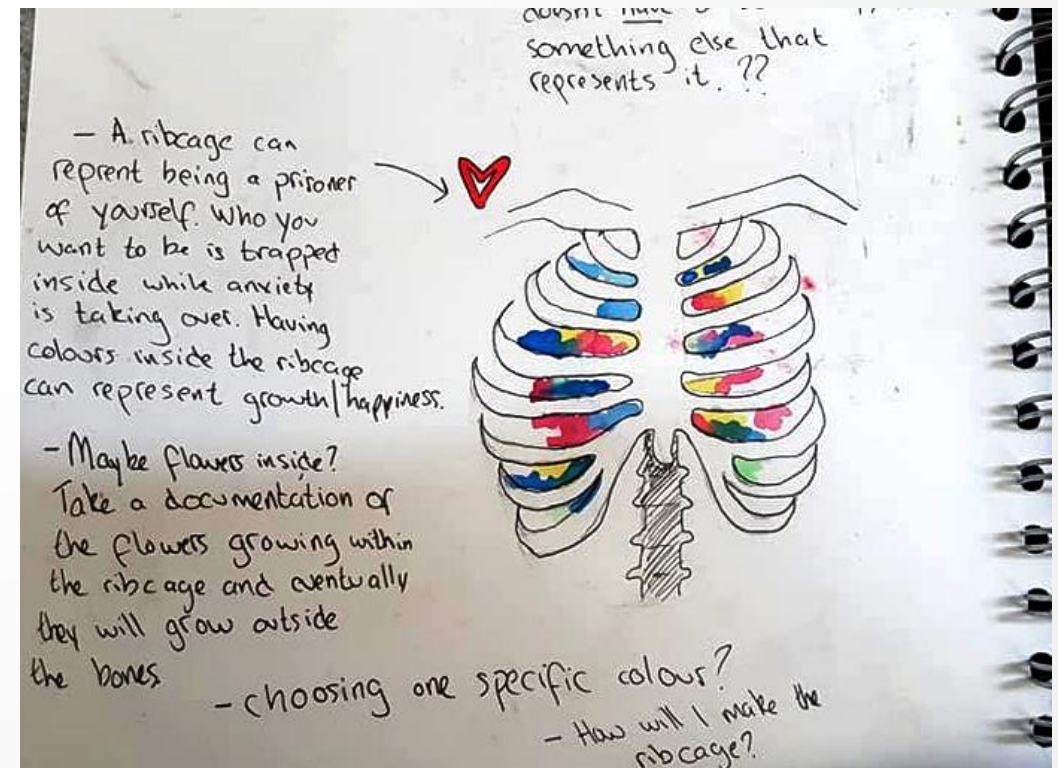 doesn't have
something else that
represents it. ??
- A ribcage can
reprent being a prisoner
of yourself. Who you
want to be is trapped
inside while anxiety
is taking over. Having
colours inside the ribcage
can represent growth/happiness.
- Maybe flowers inside?
Take a documentation of
the flowers growing within
the ribcage and eventually
they will grow outside
the bones
- choosing one specific colour?
- How will I make the
ribcage?